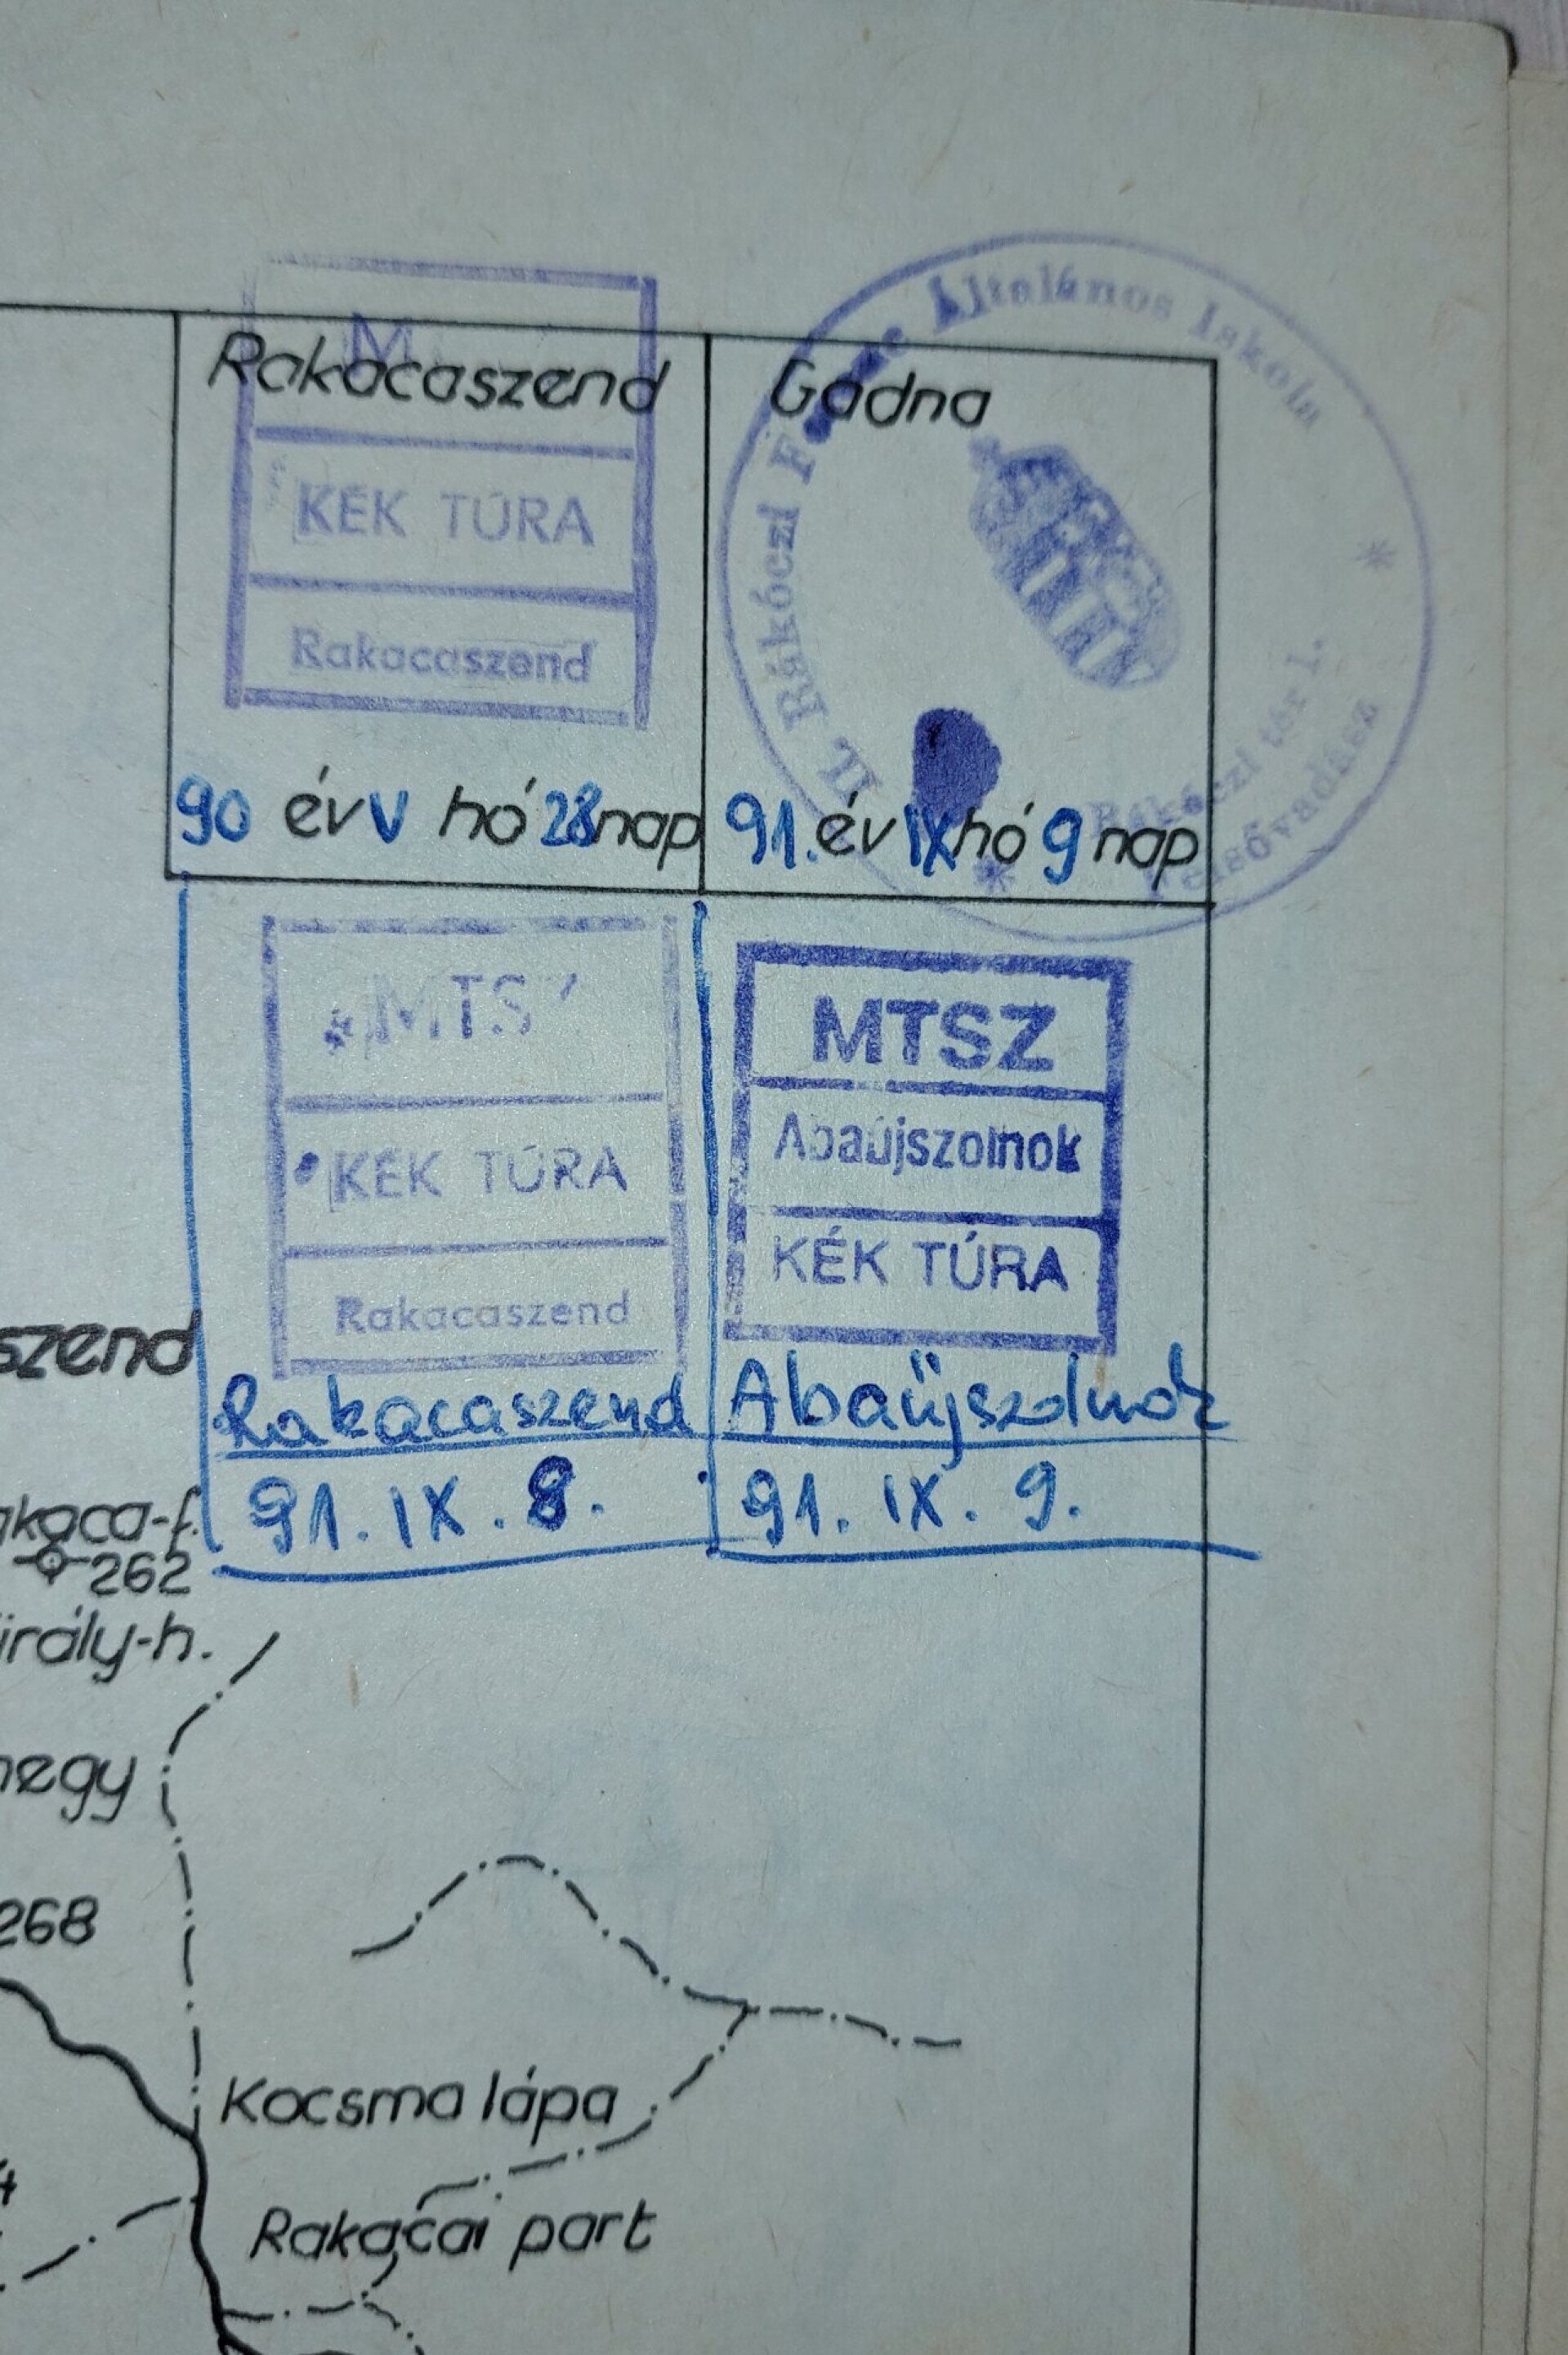 Rakacaszend
M
KÉK TÚRA
Rakacaszend
90 év V hó 28 nap
Gadna
II. Rákóczi Ferenc Általános Iskola
Rákóczi tér 1.
Felsővadász
91. év IX hó 9 nap
MTSZ
KÉK TÚRA
Rakacaszend
Rakacaszend
91. IX. 8.
MTSZ
Abaújszolnok
KÉK TÚRA
Abaújszolnok
91. IX. 9.
szend
akaca-f.
262
irály-h.
hegy
268
Kocsma lápa
Rakacai part